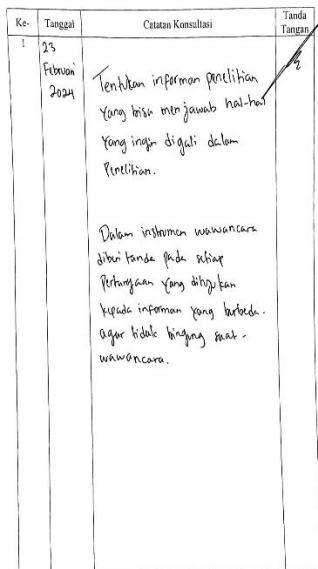 Ke- Tanggal Catatan Konsultasi Tanda Tangan
1 23 Februari 2024
Tentukan informan penelitian
yang bisa menjawab hal-hal
yang ingin digali dalam
Penelitian.
Dalam instrumen wawancara
diberi tanda pada setiap
Pertanyaan yang ditujukan
kepada informan yang berbeda.
agar tidak bingung saat -
wawancara.